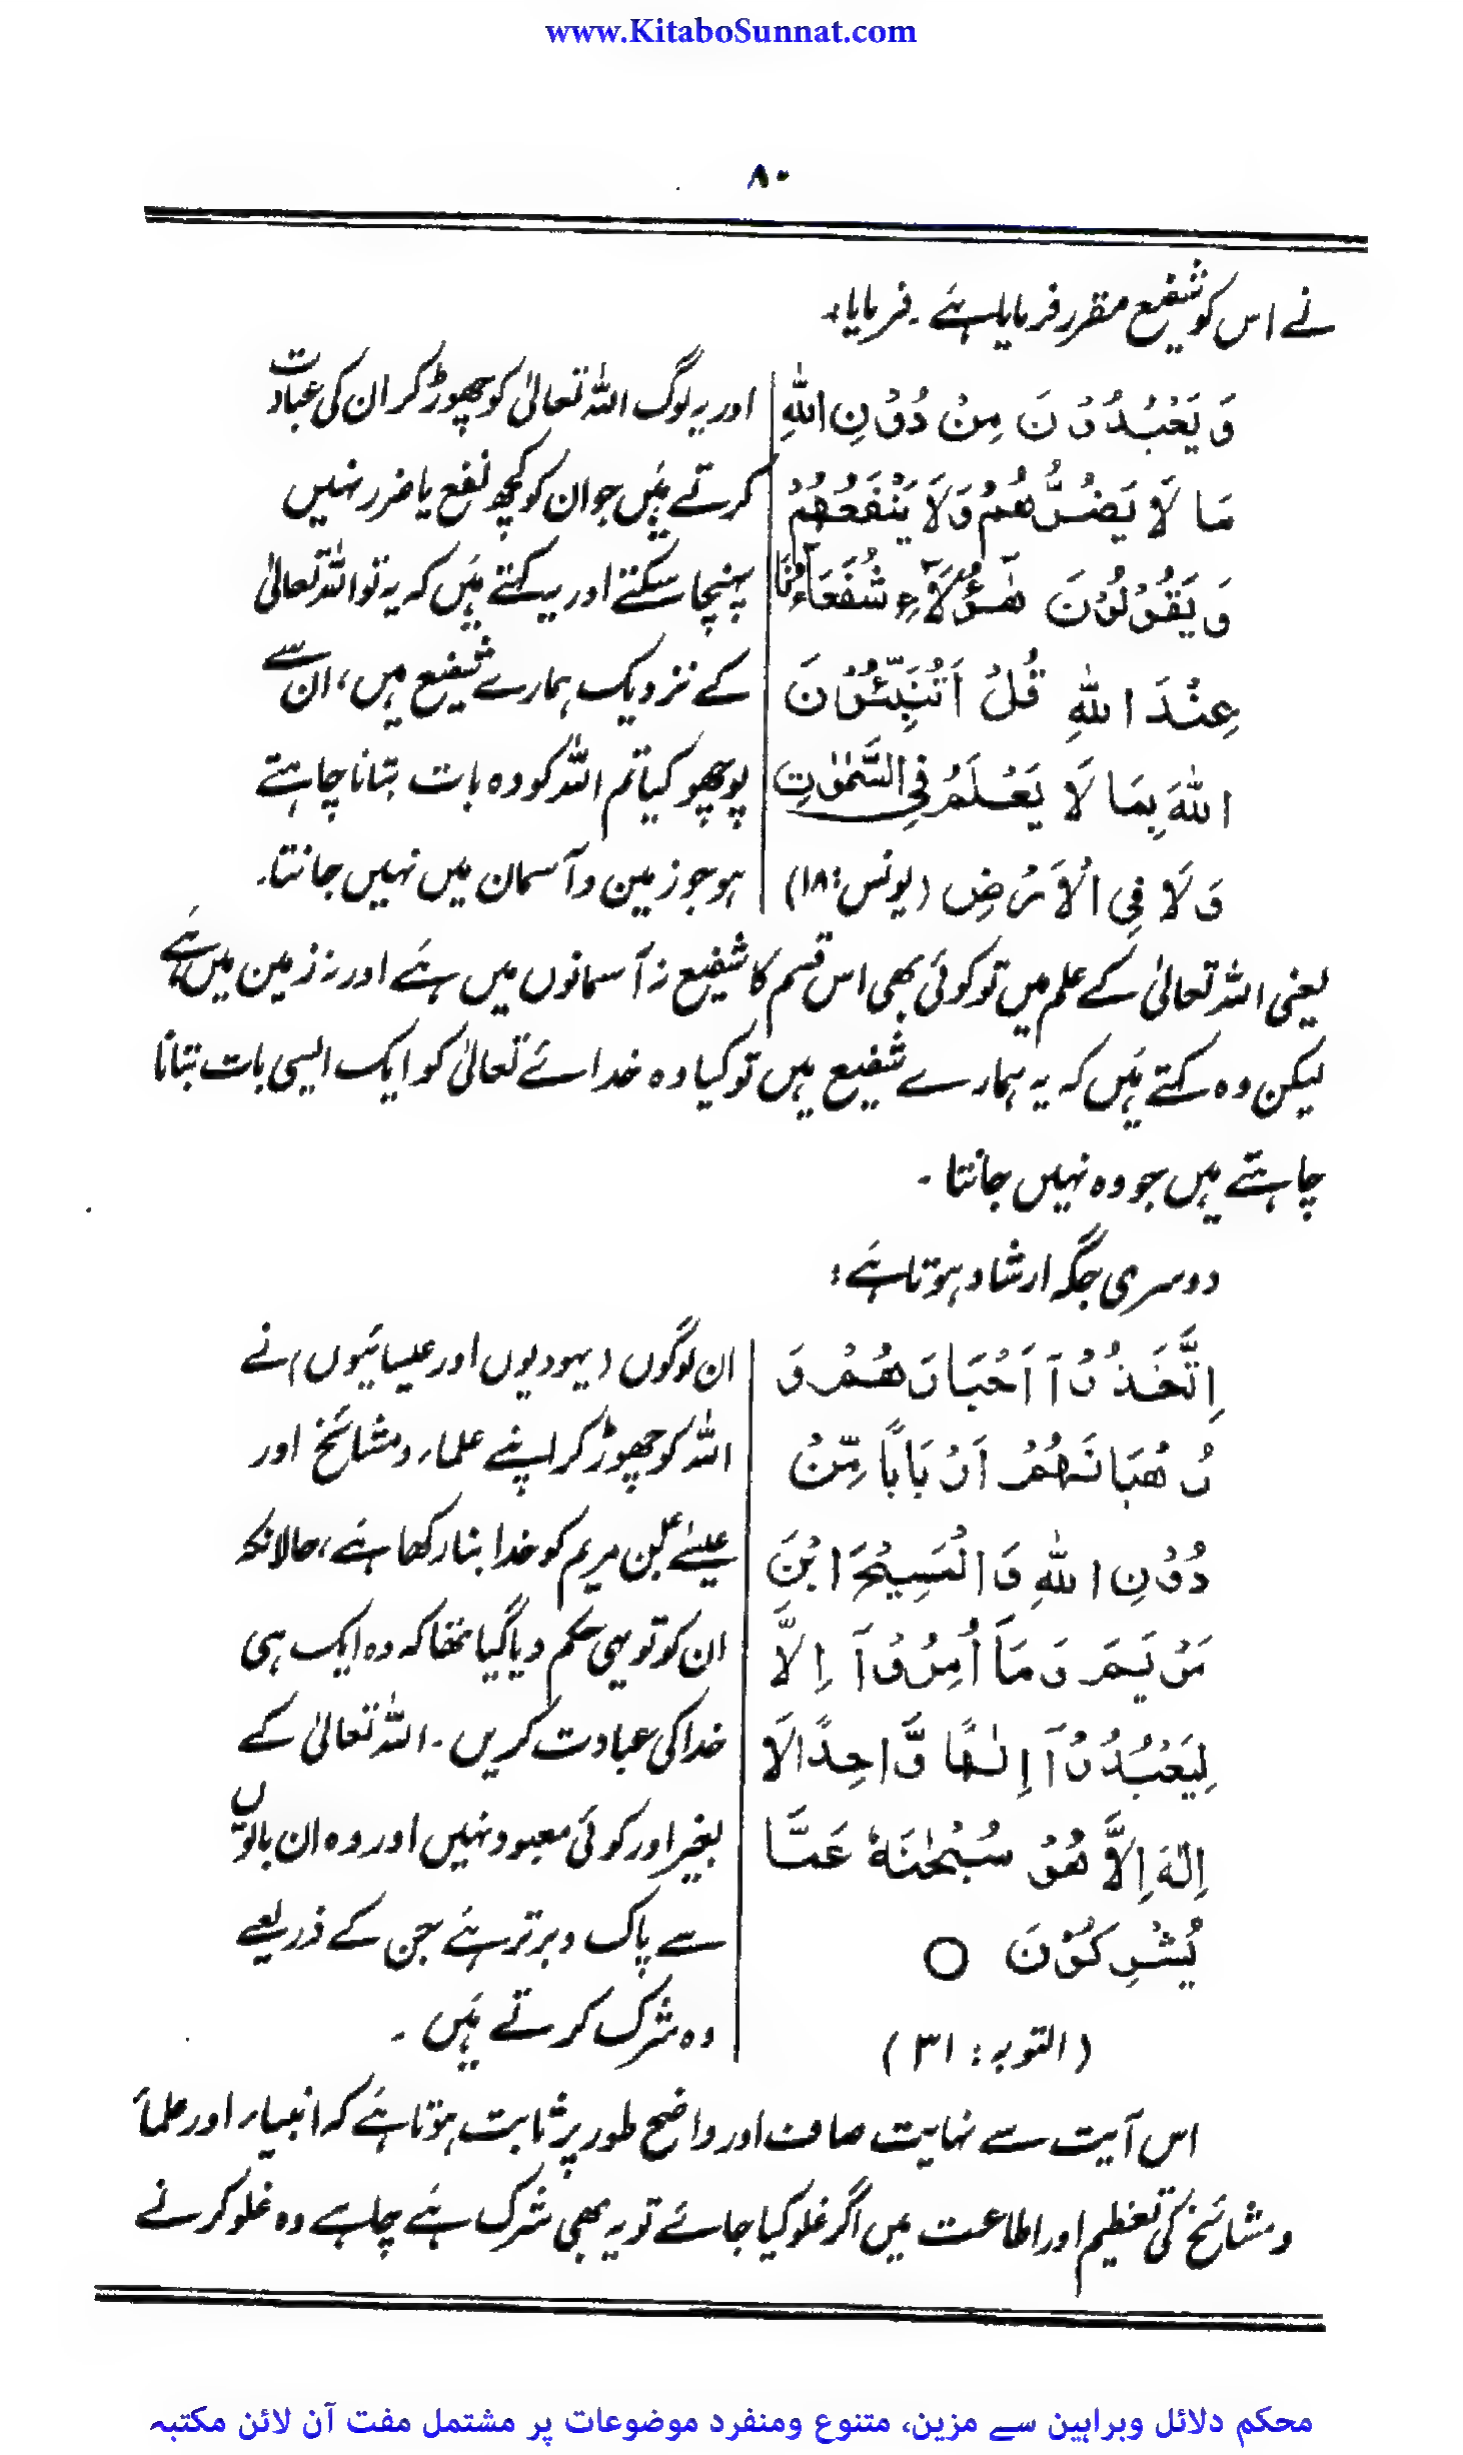 www.KitaboSunnat.com
۸۰
نے اس کو شفیع مقرر فرمایا ہے۔ فرمایا:
وَيَعْبُدُوْنَ مِنْ دُوْنِ اللّٰهِ
مَا لَا يَضُرُّهُمْ وَلَا يَنْفَعُهُمْ
وَيَقُوْلُوْنَ هٰٓؤُلَآءِ شُفَعَآؤُنَا
عِنْدَ اللّٰهِ قُلْ اَتُنَبِّئُوْنَ
اللّٰهَ بِمَا لَا يَعْلَمُ فِي السَّمٰوٰتِ
وَلَا فِي الْاَرْضِ (یونس: ۱۸)
اور یہ لوگ اللہ تعالیٰ کو چھوڑ کر ان کی عبادت
کرتے ہیں جو ان کو کچھ نفع یا ضرر نہیں
پہنچا سکتے اور یہ کہتے ہیں کہ یہ تو اللہ تعالیٰ
کے نزدیک ہمارے شفیع ہیں، ان سے
پوچھو کیا تم اللہ کو وہ بات بتانا چاہتے
ہو جو زمین و آسمان میں نہیں جانتا۔
یعنی اللہ تعالیٰ کے علم میں تو کوئی بھی اس قسم کا شفیع نہ آسمانوں میں ہے اور نہ زمین میں ہے
لیکن وہ کہتے ہیں کہ یہ ہمارے شفیع ہیں تو کیا وہ خدائے تعالیٰ کو ایک ایسی بات بتانا
چاہتے ہیں جو وہ نہیں جانتا۔
دوسری جگہ ارشاد ہوتا ہے:
اِتَّخَذُوْٓا اَحْبَارَهُمْ وَ
رُهْبَانَهُمْ اَرْبَابًا مِّنْ
دُوْنِ اللّٰهِ وَالْمَسِيْحَ ابْنَ
مَرْيَمَ وَمَآ اُمِرُوْٓا اِلَّا
لِيَعْبُدُوْٓا اِلٰهًا وَّاحِدًا لَا
اِلٰهَ اِلَّا هُوَ سُبْحٰنَهٗ عَمَّا
يُشْرِكُوْنَ ○
(التوبہ: ۳۱)
ان لوگوں (یہودیوں اور عیسائیوں) نے
اللہ کو چھوڑ کر اپنے علماء و مشائخ اور
عیسےٰ بن مریم کو خدا بنا رکھا ہے، حالانکہ
ان کو تو یہی حکم دیا گیا تھا کہ وہ ایک ہی
خدا کی عبادت کریں۔ اللہ تعالیٰ کے
بغیر اور کوئی معبود نہیں اور وہ ان باتوں
سے پاک و برتر ہے جن کے ذریعے
وہ شرک کرتے ہیں۔
اس آیت سے نہایت صاف اور واضح طور پر ثابت ہوتا ہے کہ انبیاء اور علماء
و مشائخ کی تعظیم اور اطاعت میں اگر غلو کیا جائے تو یہ بھی شرک ہے چاہے وہ غلو کرنے
محکم دلائل وبراہین سے مزین، متنوع ومنفرد موضوعات پر مشتمل مفت آن لائن مکتبہ